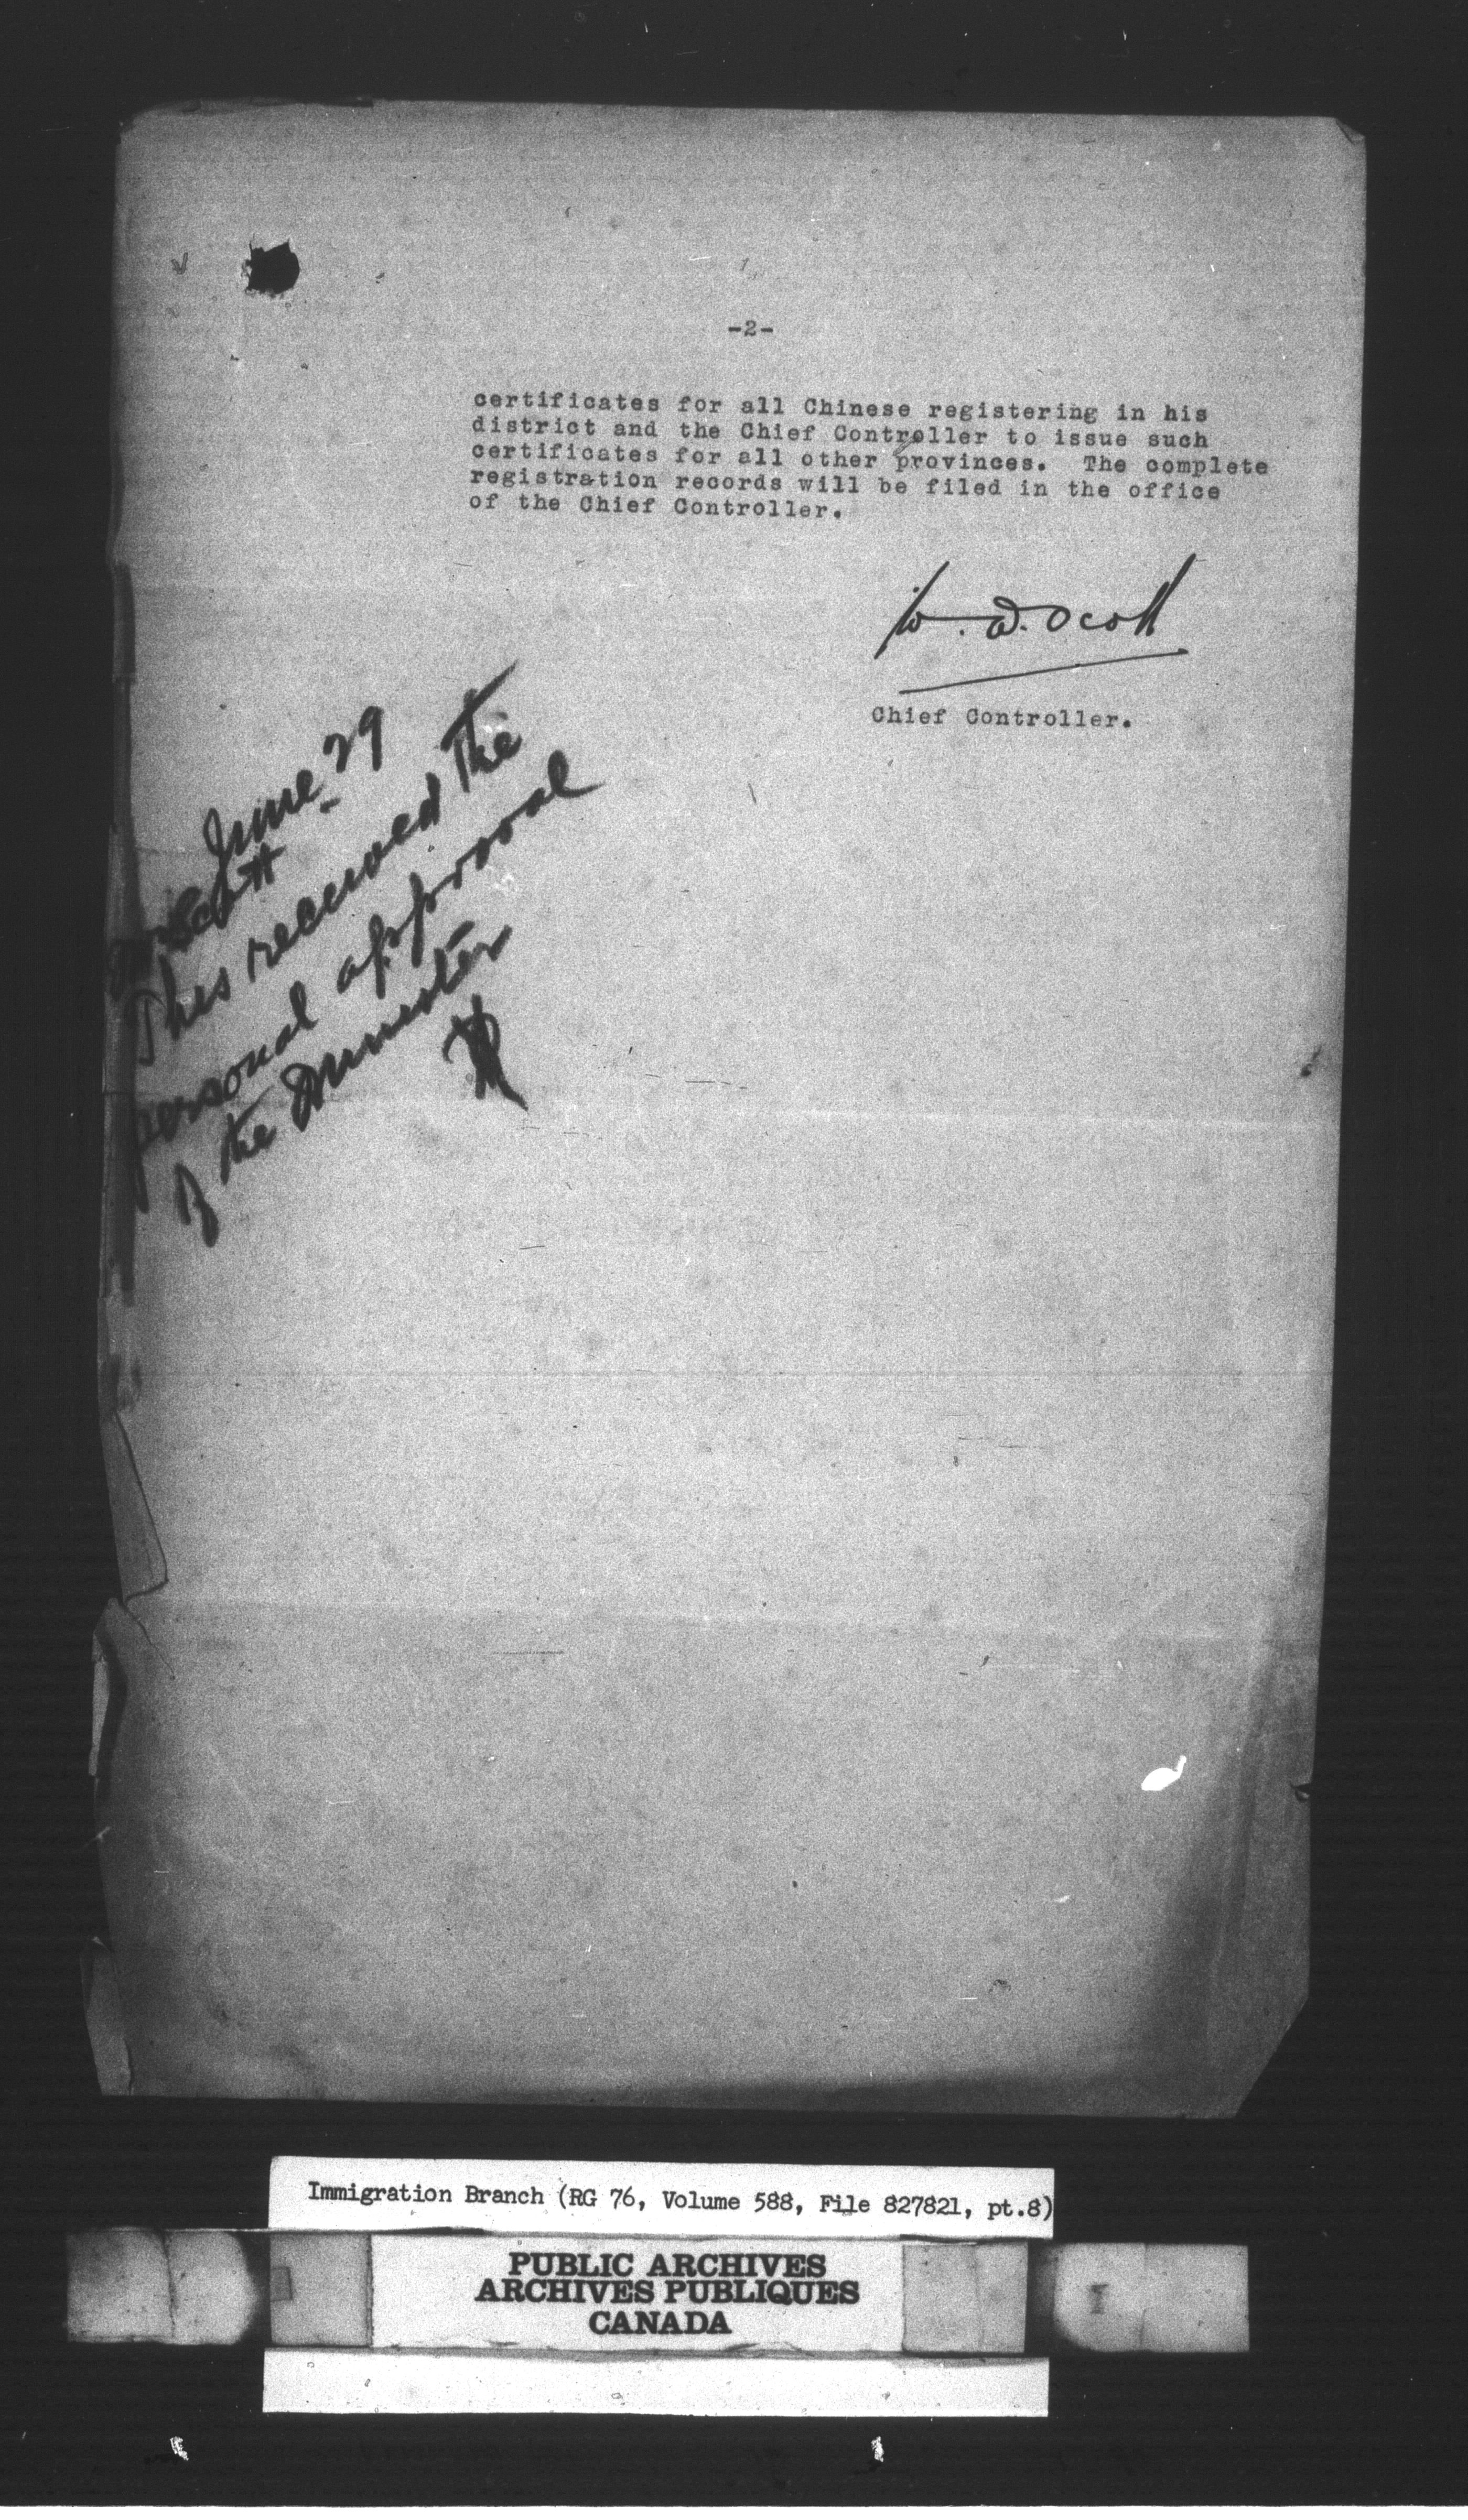 -2-
certificates for all Chinese registering in his
district and the Chief Controller to issue such
certificates for all other provinces. The complete
registration records will be filed in the office
of the Chief Controller.
W. D. Scott
Chief Controller.
June 29
Mr Scott
This received the
personal approval
of the Minister
Immigration Branch (RG 76, Volume 588, File 827821, pt.8)
PUBLIC ARCHIVES
ARCHIVES PUBLIQUES
CANADA